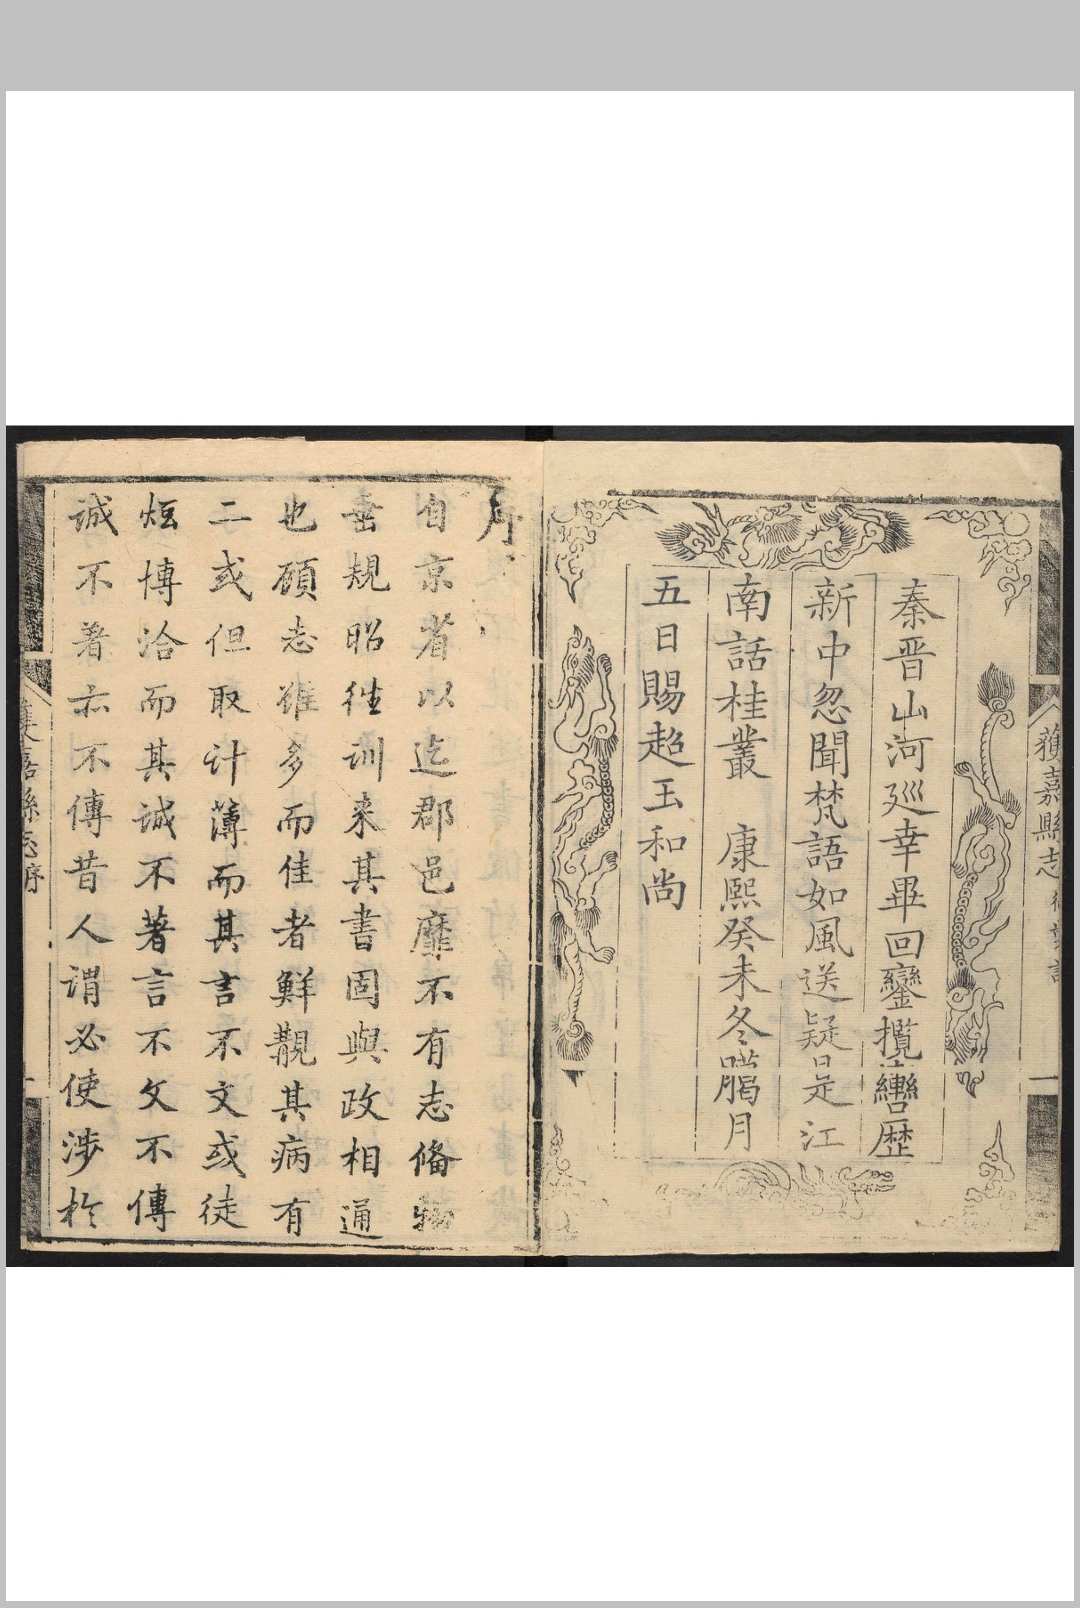 嘉縣志
秦晋山河廵幸畢回鑾攬轡歴
新中忽聞梵語如風送疑是江
南話桂叢 康熙癸未冬臈月
五日賜超玉和尚
序
自京省以迄郡邑靡不有志俻物
垂規昭徃训来其書固與政相通
也顧志雖多而佳者鮮覩其病有
二或但取计薄而其言不文或徒
炫博洽而其诚不著言不文不傳
诚不著亦不傳昔人谓必使涉於
嘉縣志序